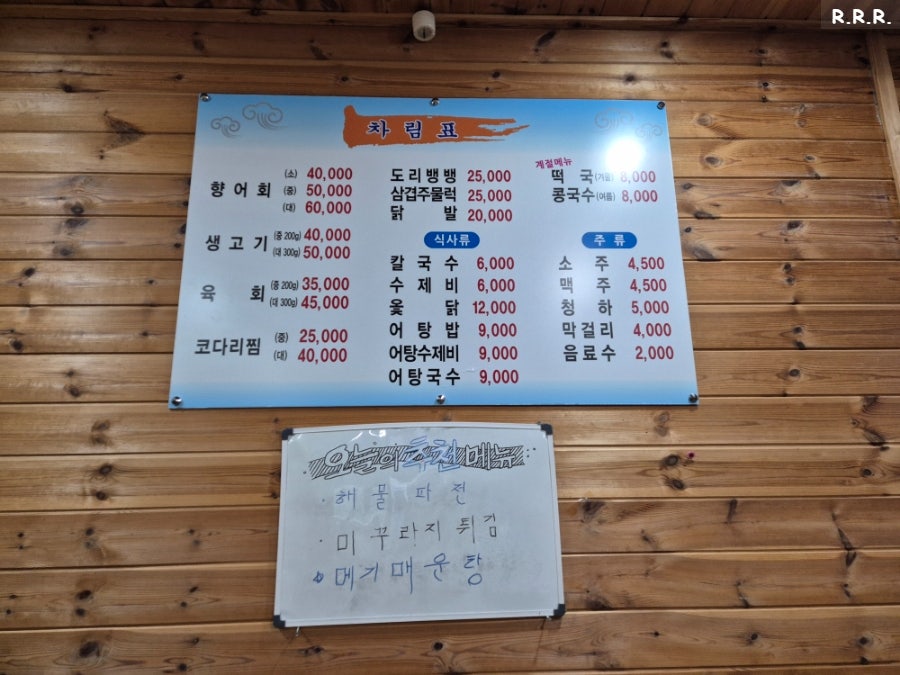 R.R.R.
차림표
향어회 (소) 40,000
(중) 50,000
(대) 60,000
생고기 (중 200g) 40,000
(대 300g) 50,000
육회 (중 200g) 35,000
(대 300g) 45,000
코다리찜 (중) 25,000
(대) 40,000
도리뱅뱅 25,000
삼겹주물럭 25,000
닭발 20,000
식사류
칼국수 6,000
수제비 6,000
옻닭 12,000
어탕밥 9,000
어탕수제비 9,000
어탕국수 9,000
계절메뉴
떡국 (겨울) 8,000
콩국수 (여름) 8,000
주류
소주 4,500
맥주 4,500
청하 5,000
막걸리 4,000
음료수 2,000
오늘의 추천 메뉴
· 해물파전
· 미꾸라지 튀김
메기매운탕